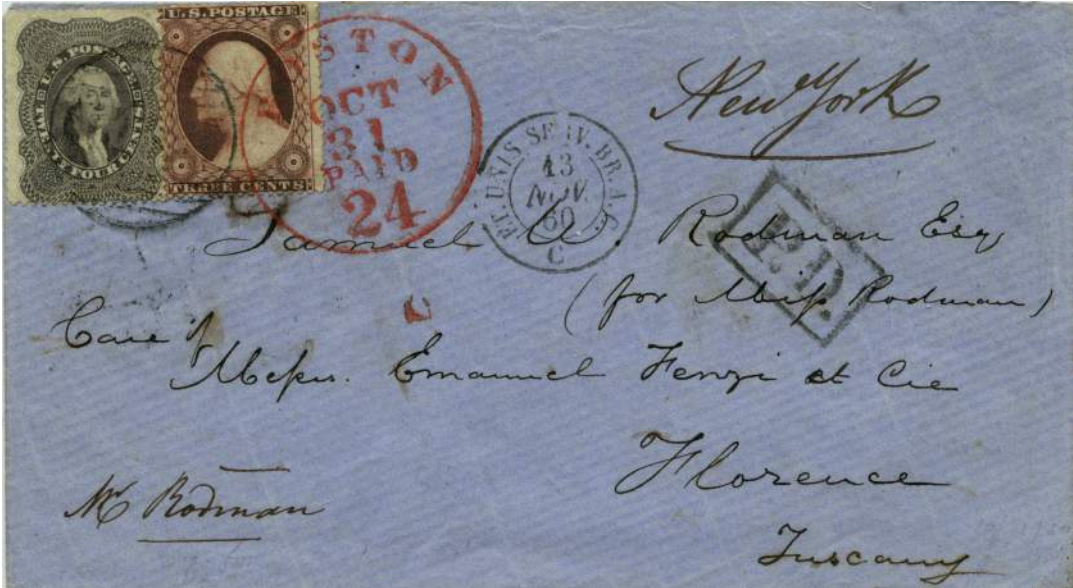 U.S. POSTAGE
TWENTY FOUR CENTS
U.S. POSTAGE
THREE CENTS
BOSTON
OCT
31
PAID
24
ET. UNIS SERV. BR. A. C.
13
NOV.
60
C
New York
P.D.
Samuel W. Rodman Esq
(for Miſs Rodman)
Care of
Meſsrs. Emanuel Fenzi et Cie
Florence
Tuscany
Mr Rodman